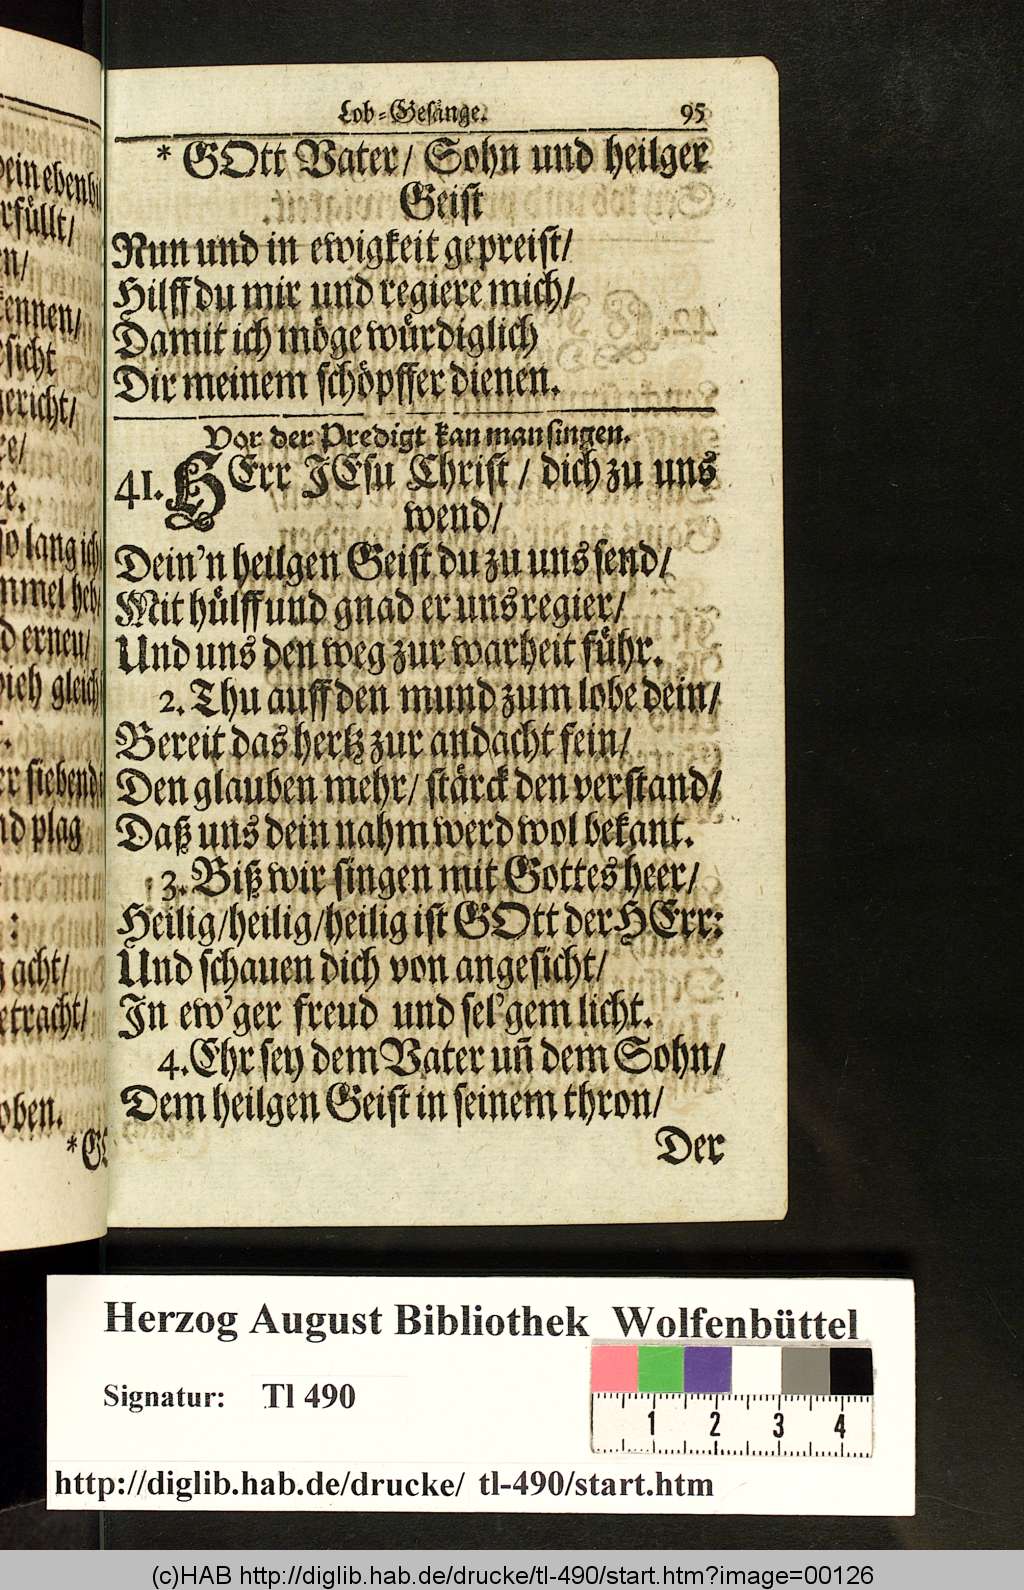 Lob-Gesänge. 95
* GOtt Vater/ Sohn und heilger
Geist
Nun und in ewigkeit gepreist/
Hilff du mir und regiere mich/
Damit ich möge würdiglich
Dir meinem schöpffer dienen.
Vor der Predigt kan man singen.
41. HErr JEsu Christ / dich zu uns
wend/
Dein'n heilgen Geist du zu uns send/
Mit hülff und gnad er uns regier/
Und uns den weg zur warheit führ.
2. Thu auff den mund zum lobe dein/
Bereit das hertz zur andacht fein/
Den glauben mehr/ stärck den verstand/
Daß uns dein nahm werd wol bekant.
3. Biß wir singen mit Gottes heer/
Heilig/heilig/heilig ist GOtt der HErr:
Und schauen dich von angesicht/
In ew'ger freud und sel'gem licht.
4. Ehr sey dem Vater uñ dem Sohn/
Dem heilgen Geist in seinem thron/
Der
rfüllt/
kennen/
esicht
gericht/
so lang ich
mmel heb/
d erneu/
gleich
er siebend
nd plag
:
acht/
etracht/
oben.
Herzog August Bibliothek Wolfenbüttel
Signatur: Tl 490
1 2 3 4
http://diglib.hab.de/drucke/ tl-490/start.htm
(c)HAB http://diglib.hab.de/drucke/tl-490/start.htm?image=00126